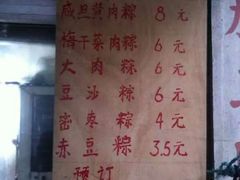 咸旦黄肉粽 8 元
梅干菜肉粽 6 元
大肉粽 6 元
豆沙粽 6 元
密枣粽 4 元
赤豆粽 3.5元
预订